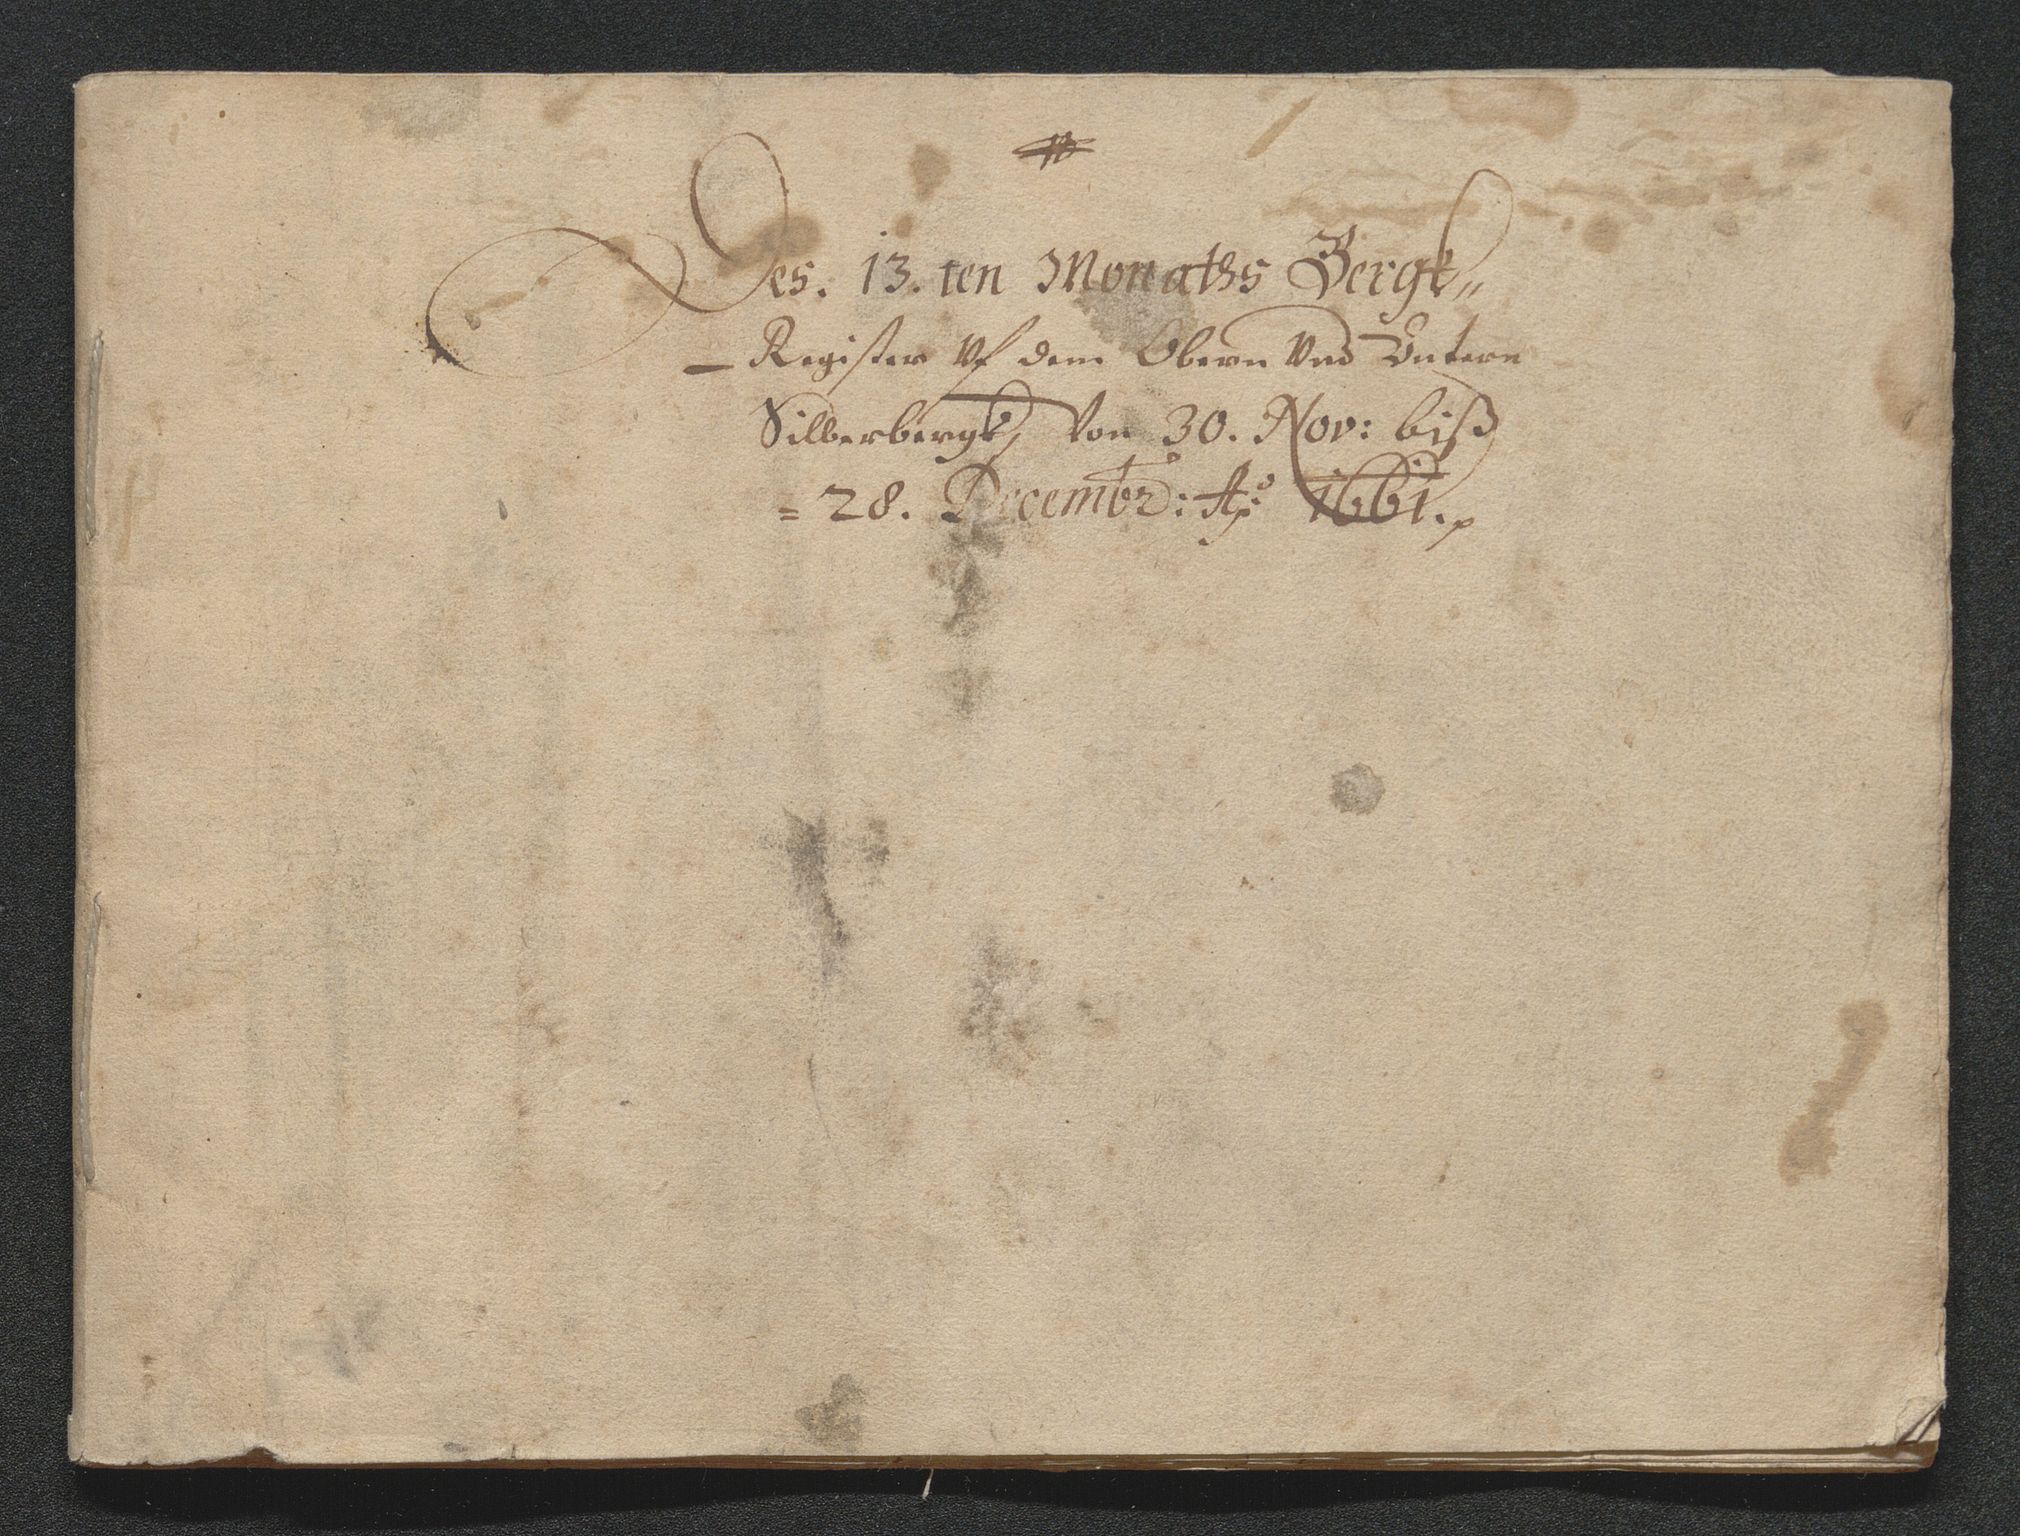 Des. 13. ten Monaths Bergk„
Register Vf dem Obern Vnd Vntern
Silberbergk, Von 30. Nov: biß
= 28. Decembr: Ao 1661.